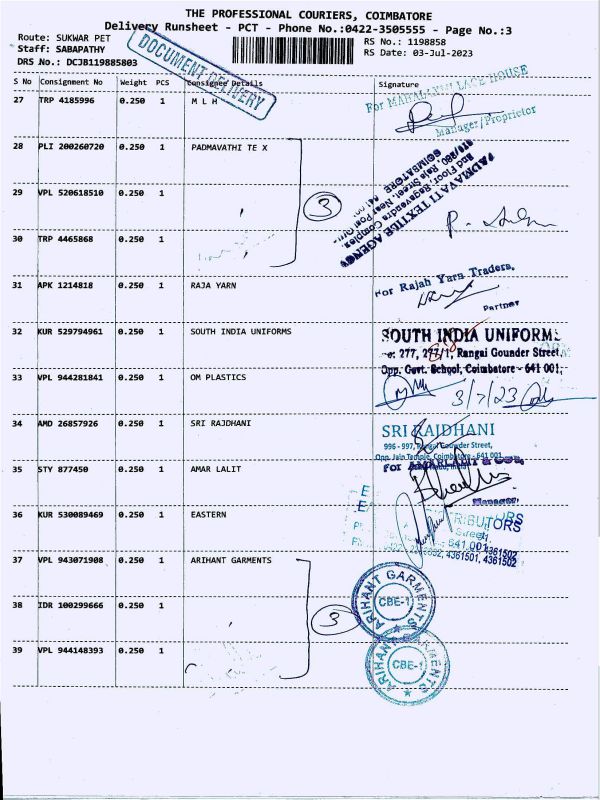 THE PROFESSIONAL COURIERS, COIMBATORE
Delivery Runsheet - PCT - Phone No.:0422-3505555 - Page No.:3
Route: SUKWAR PET
RS No.: 1198858
Staff: SABAPATHY
RS Date: 03-Jul-2023
DRS No.: DCJB119885803
DOCUMENT DELIVERY
S No Consignment No Weight PCS Consignee Details Signature
27 TRP 4185996 0.250 1 M L H
For MAHALAXMI LACE HOUSE
Manager/Proprietor
28 PLI 200260720 0.250 1 PADMAVATHI TE X
29 VPL 520618510 0.250 1 ,
3
PADMAVATI TEXTILE AGENCY
2nd Floor, Ragavendra Complex
Raja Street, Near Post
COIMBATORE
30 TRP 4465868 0.250 1
31 APK 1214818 0.250 1 RAJA YARN
For Rajah Yarn Traders,
Partner
32 KUR 529794961 0.250 1 SOUTH INDIA UNIFORMS
SOUTH INDIA UNIFORMS
277, 277/1, Rangai Gounder Street,
Opp. Govt. School, Coimbatore - 641 001,
33 VPL 944281841 0.250 1 OM PLASTICS
3/7/23
34 AMD 26857926 0.250 1 SRI RAJDHANI
SRI RAJDHANI
996 - 997, Rangai Gounder Street,
Opp. Jain Temple, Coimbatore - 641 001
35 STY 877450 0.250 1 AMAR LALIT
For AMARLALIT & COS,
Manager
36 KUR 530089469 0.250 1 EASTERN
DISTRIBUTORS
Street,
641 001
4361501, 4361502
37 VPL 943071908 0.250 1 ARIHANT GARMENTS
ARIHANT GARMENTS
CBE-1
38 IDR 100299666 0.250 1 ,
3
39 VPL 944148393 0.250 1
ARIHANT GARMENTS
CBE-1